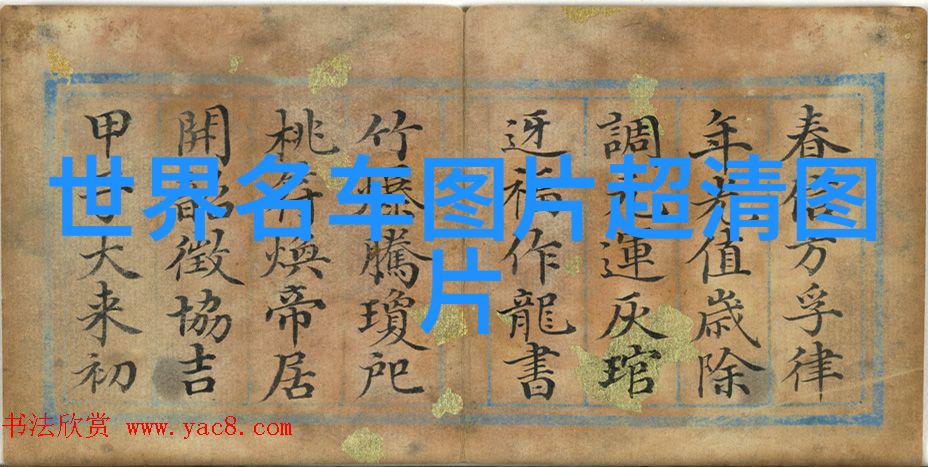 春信方孚律
年光值歲除
調運灰琯
迓福作龍書
竹爆騰瓊
桃符煥帝居
開韶徵協吉
甲子大来初
世界名车图片超清图
片
书法欣赏 www.yac8.com